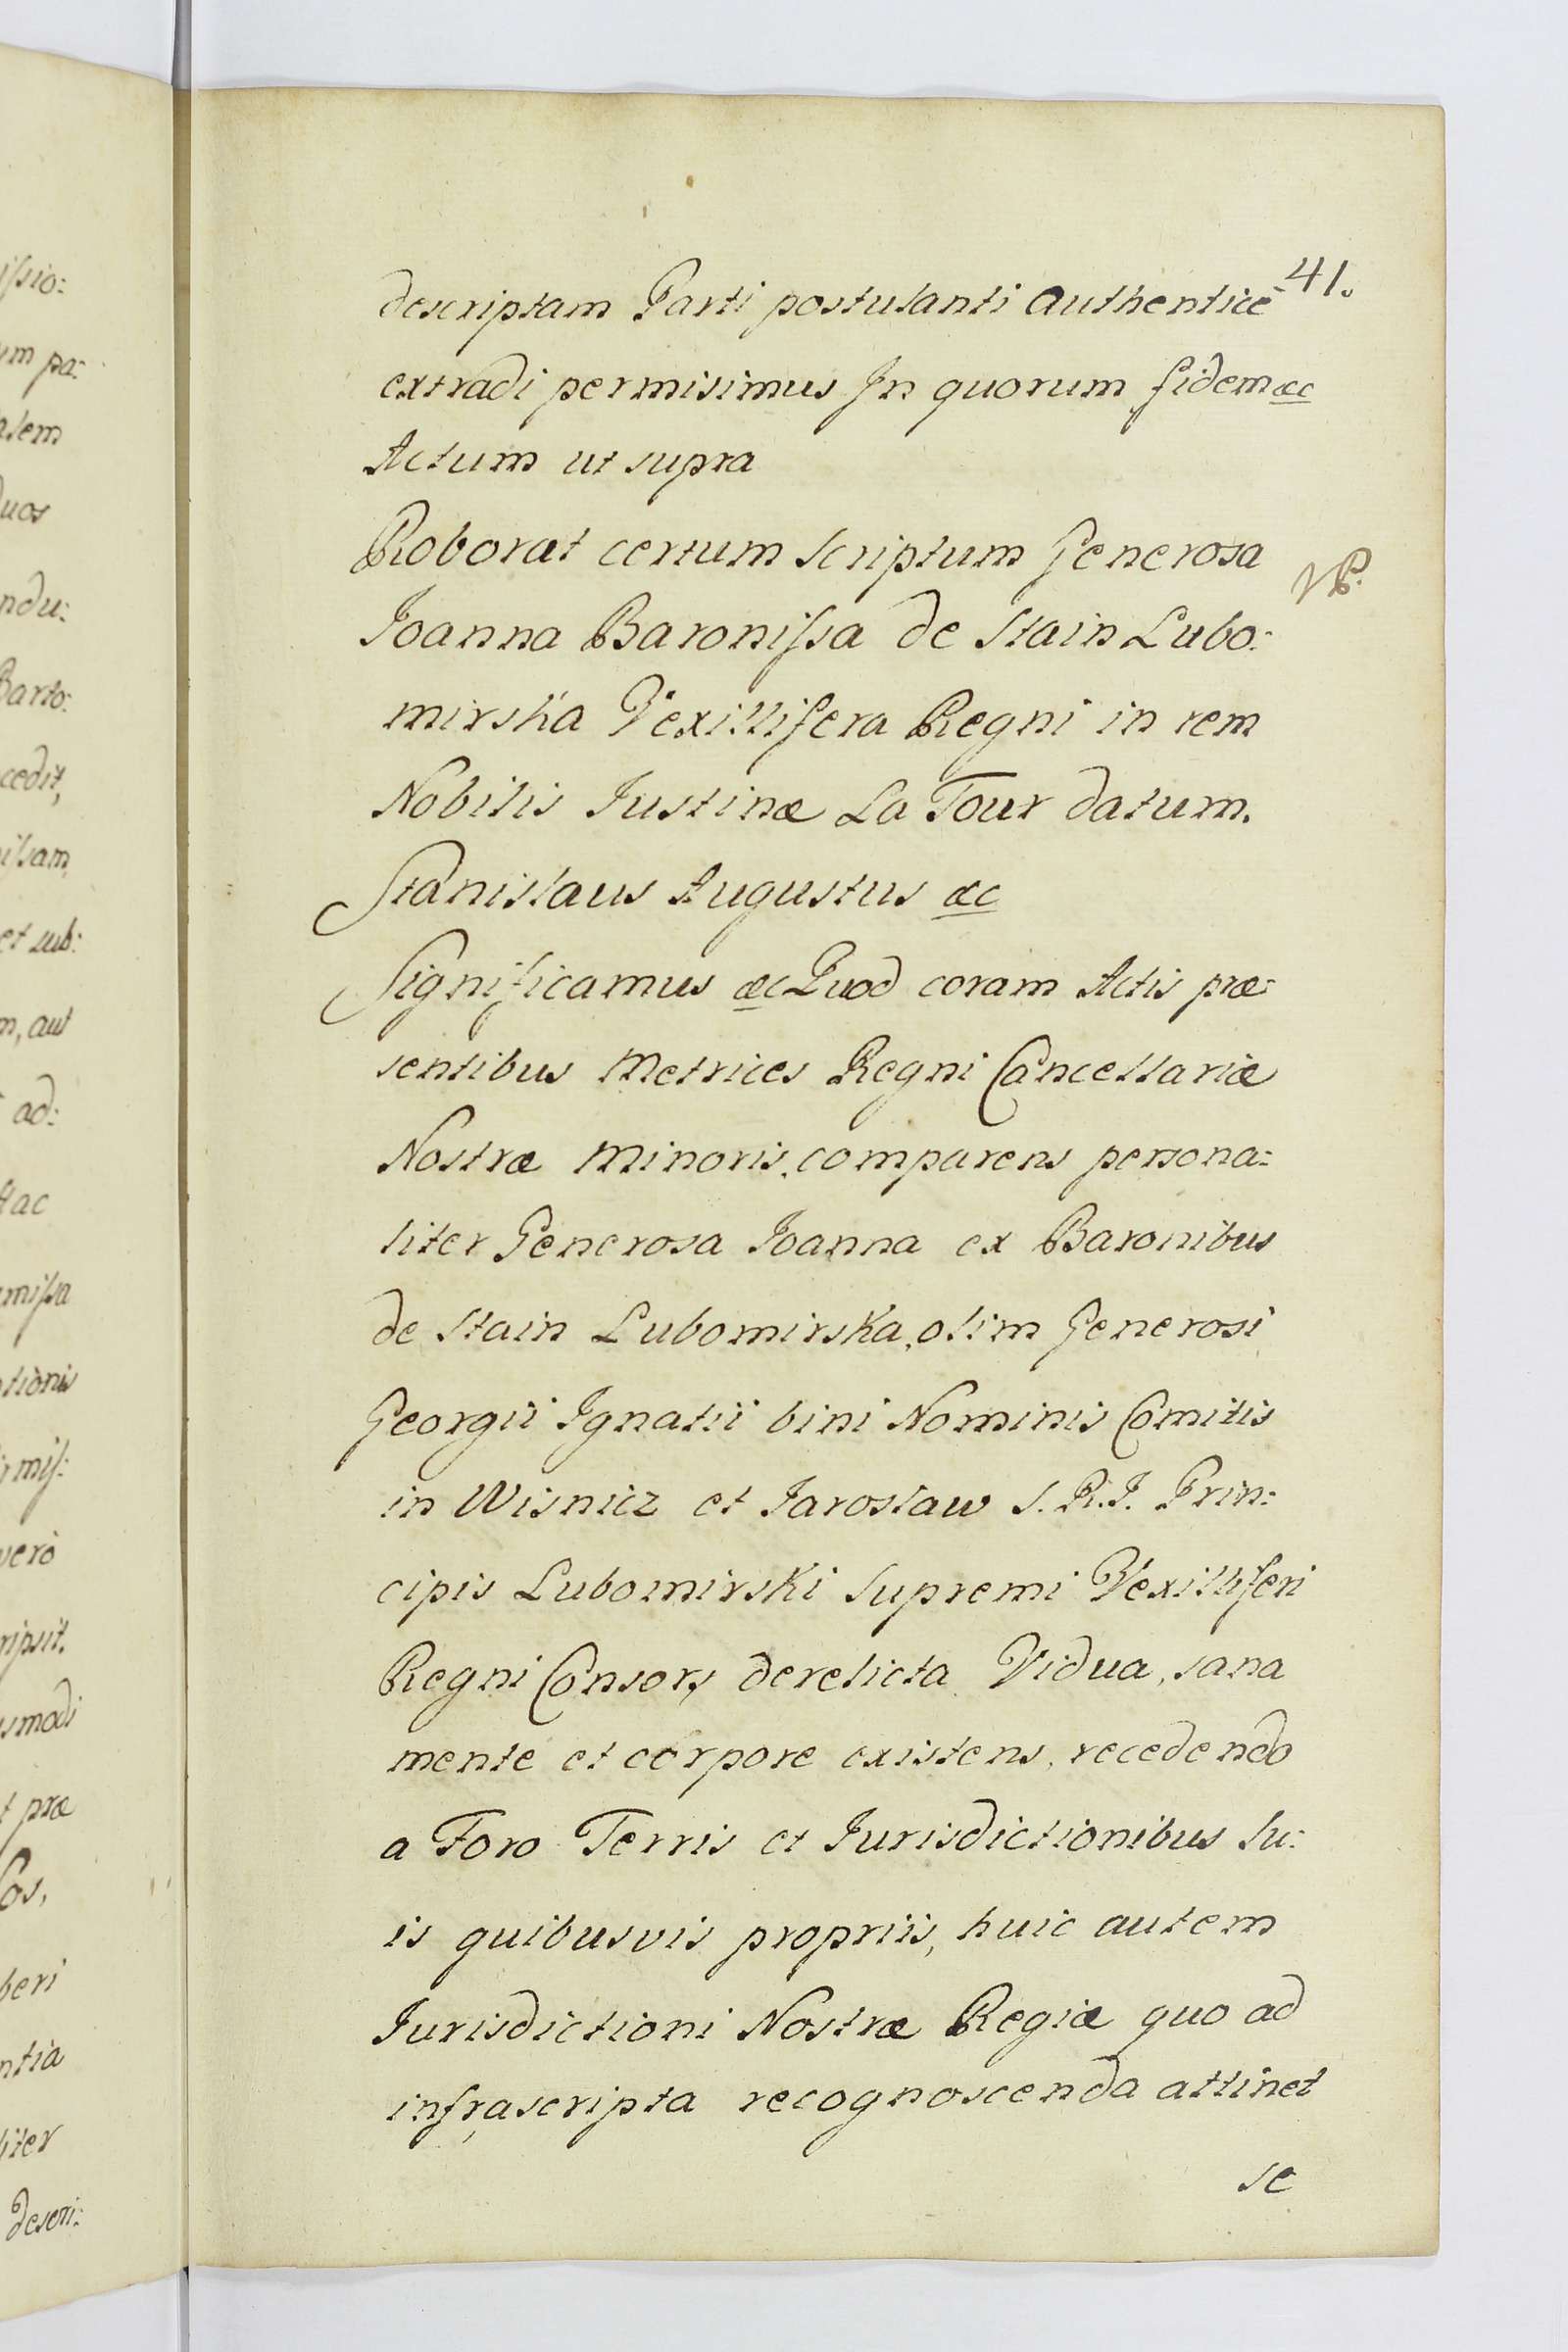 41.
descriptam Parti postulanti authentice
extradi permisimus In quorum fidem &c
Actum ut supra
Roborat certum scriptum Generosa
Joanna Baronissa de Stain Lubo:
mirska Vexillifera Regni in rem
Nobilis Justinæ La Tour datum.
Stanislaus Augustus &c
Significamus &c Quod coram Actis præ:
sentibus Metrices Regni Cancellariæ
Nostræ Minoris, comparens persona:
liter Generosa Joanna ex Baronibus
de Stain Lubomirska, olim Generosi
Georgii Ignatii bini Nominis Comitis
in Wisnicz et Jaroslaw S. R. I. Prin:
cipis Lubomirski Supremi Vexilliferi
Regni Consors, derelicta Vidua, sana
mente et corpore existens, recedendo
a Foro Terris et Jurisdictionibus su:
is quibusvis propriis, huic autem
Jurisdictioni Nostræ Regiæ quo ad
infrascripta recognoscenda attinet
se
issio:
um pa:
alem
duos
ndu:
Barto:
cedit,
ilsam
et sub:
m, aut
ad:
Hac
missa
tionis
mis:
vero
ripsit.
smodi
præ
beri
ntia
liter
descri: